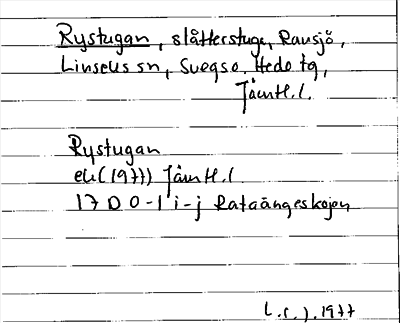 Rystugan, slåtterstuga, Ransjö,
Linsells sn, Svegs o. Hede tg,
Jämtl. l.
Rystugan
ek (1977) Jämtl. l
17 D 0-1 i-j Rataängeskojen
1977